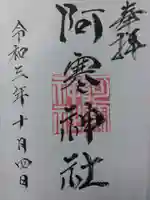 奉拝
阿寒神社
令和三年十月四日